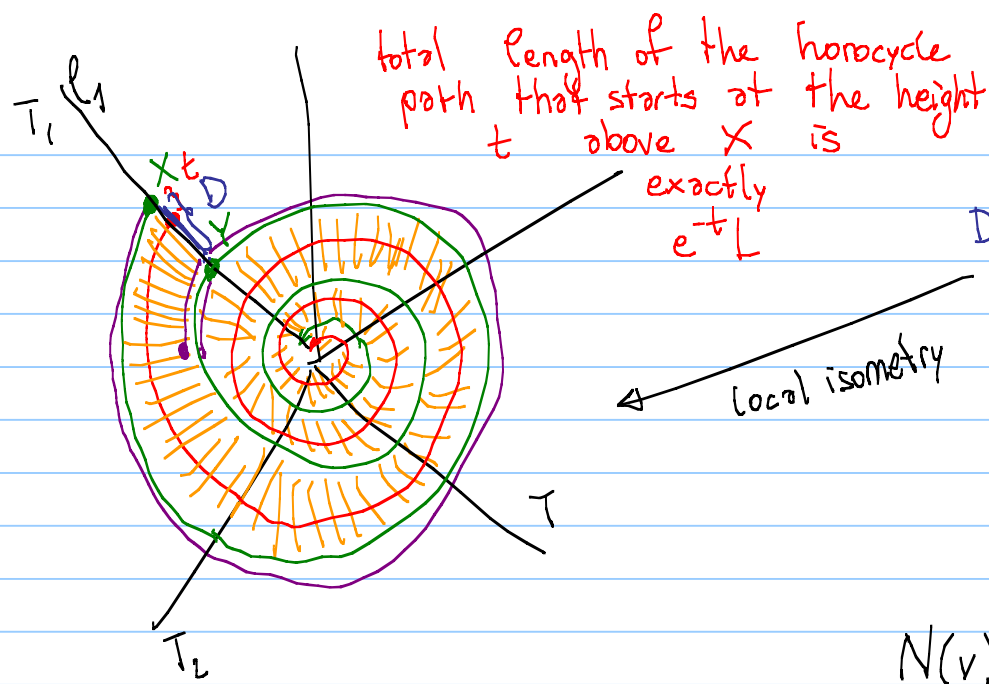 total length of the horocycle
path that starts at the height
t above X is
exactly
e^{-t} L
l_1
T_1
X t
D
Y
D
local isometry
T
T_2
N(v)